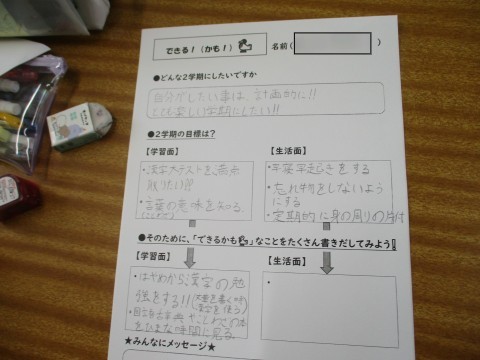 できる！（かも！）
名前（ ）
●どんな２学期にしたいですか
自分がしたい事は、計画的に!!
とても楽しい学期にしたい!!
●２学期の目標は？
【学習面】
・漢字大テストを満点
取りたい!!!
・言葉の意味を知る
【生活面】
・早寝早起きをする
・忘れ物をしないよう
にする
・定期的に身の周りの片付
●そのために、「できるかも」なことをたくさん書きだしてみよう！
【学習面】
・はやめから漢字の勉
強をする!!
・国語辞典や
ひまな時間に見る
【生活面】
・
★みんなにメッセージ★